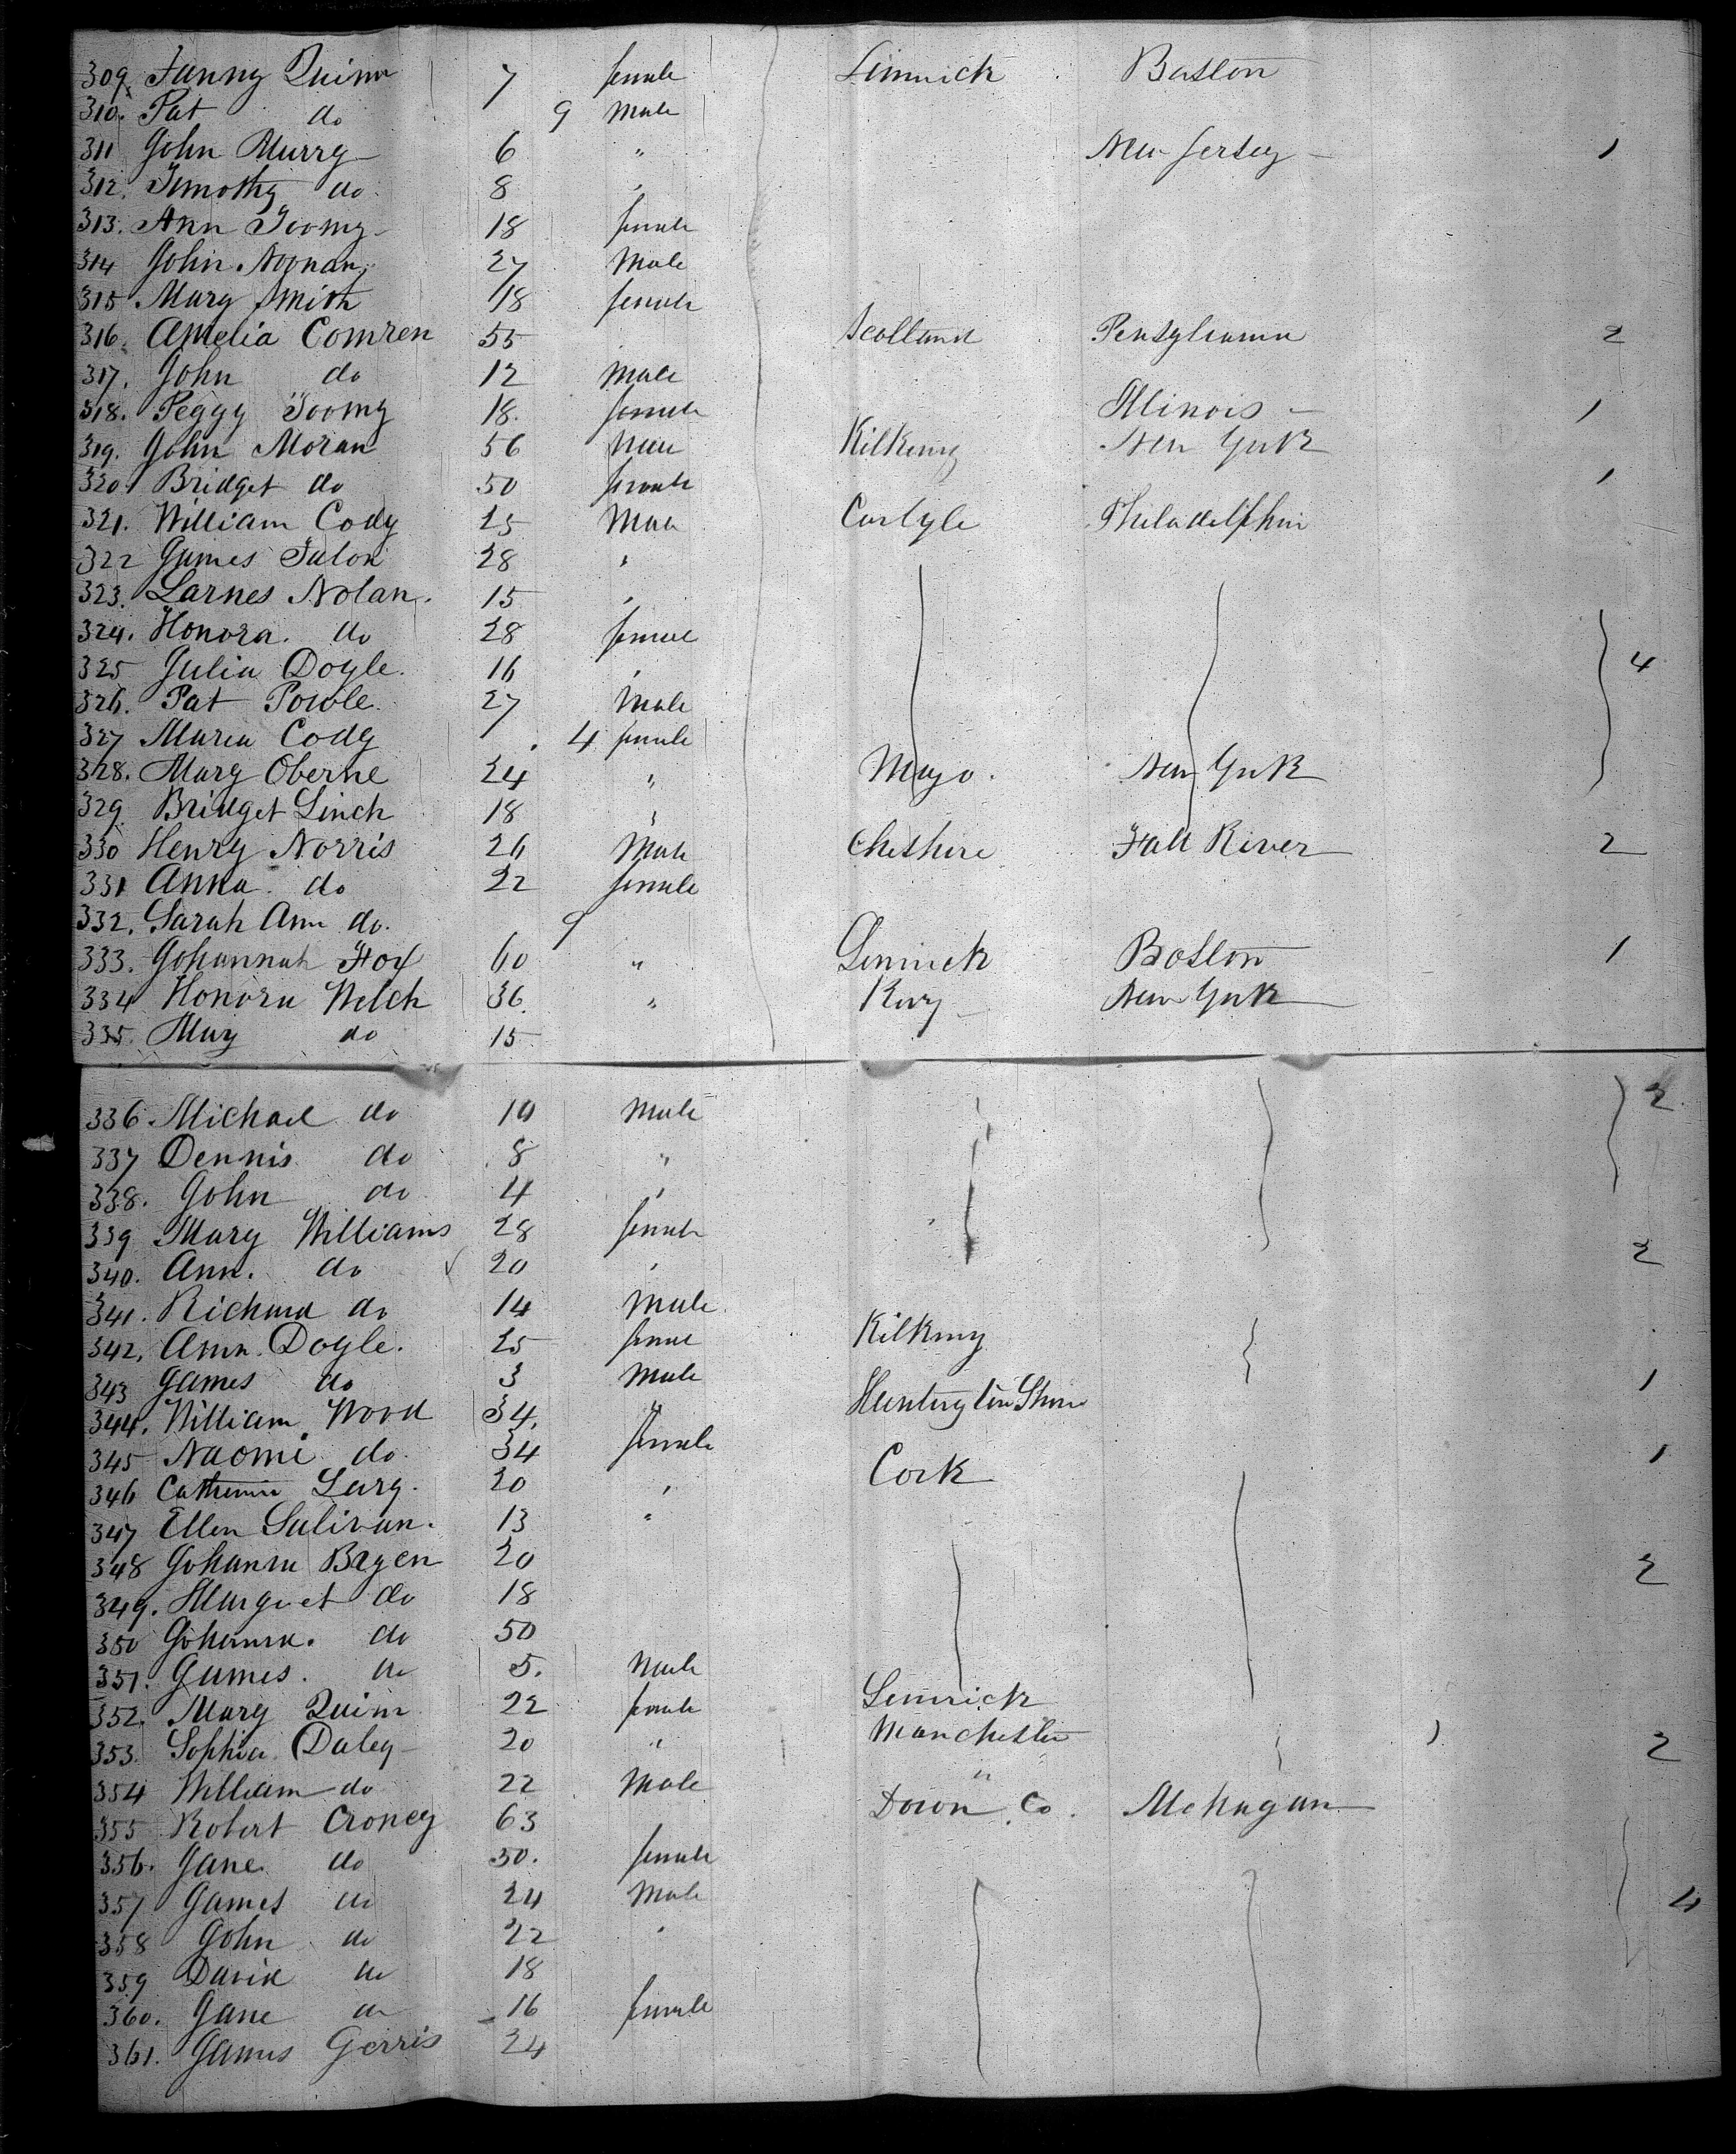 309. Fanny Quinn 7 female Limrick Boston
310. Pat do 9 Male
311 John Murry 6 " New Jersey 1
312. Timothy do 8 "
313. Ann Toomy 18 female
314 John Noonan 27 Male
315 Mary Smith 18 female
316. Amelia Comren 55 Scotland Pensylvania 2
317. John do 12 Male
318. Peggy Toomy 18. female Illinois 1
319. John Moran 56 Male Kilkeny New York
320 Bridget do 50 female 1
321. William Cody 25 Male Carlyle Philadelphia
322 James 28 "
323. Larnes Nolan. 15 "
324. Honora. do 28 female
325 Julia Doyle. 16 " 4
326. Pat Powle. 27 Male
327 Maria Cody 4 female
328. Mary Oberne 24 " Mayo. New York
329. Bridget Linch 18 "
330 Henry Norris 26 Male Cheshire Fall River 2
331 Anna. do 22 female
332. Sarah Ann do. 9
333. Johannah Fox 60 " Limrick Boston 1
334 Honora Welch 36. " Kery New York
335. May do 15
336. Michael do 10 Male 2
337 Dennis do 8 "
338. John do 4 "
339 Mary Williams 28 female
340. Ann. do 20 " 2
341. Richard do 14 Male
342. Ann. Doyle. 25 female Kilkeny
343 James do 3 Male 1
344. William Wood 34. " Huntington Shire
345 Naomi do. 34 female 1
346 Catherine 20 " Cork
347 Ellen Sulivan. 13 "
348 Johanna Bryen 20 2
349. Margret do 18
350 Johanna. do 50
351. James. do 5. Male
352. Mary Quinn 22 female Limrick
353. Sophia Daley 20 " Manchester 2
354 William do 22 Male "
355 Robert Croney 63 Down Co. Mehagan
356. Jane do 50. female
357 James do 24 Male 4
358 John do 22 "
359 David do 18
360. Jane do 16 female
361. James Gerris 24